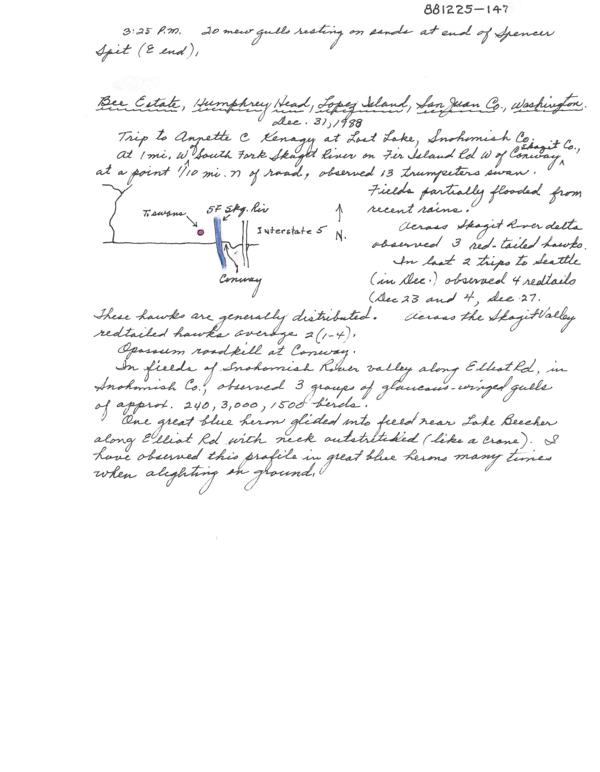 881225-147
3:25 P.M. 20 mew gulls resting on sands at end of Spencer
Spit (E end),
Bee Estate, Humphrey Head, Lopez Island, San Juan Co., Washington.
Dec. 31, 1988
Trip to Annette C Kenagy at Lost Lake, Snohomish Co.
At 1 mi, W of South Fork Skagit River on Fir Island Rd W of Conway, Skagit Co.,
at a point 1/10 mi. n of road, observed 13 trumpeters swan.
Fields partially flooded from
recent rains.
T. swans
SF Skg. Riv
Interstate 5
N.
Conway
Across Skagit River delta
observed 3 red-tailed hawks.
In last 2 trips to Seattle
(in Dec.) observed 4 redtails
(Dec 23 and 4, Dec 27.
These hawks are generally distributed. Across the Skagit Valley
redtailed hawks average 2 (1-4).
Opossum roadkill at Conway.
In fields of Snohomish River valley along Elliot Rd, in
Snohomish Co., observed 3 groups of glaucous-winged gulls
of approx. 240, 3,000, 1500 birds.
One great blue heron glided into field near Lake Beecher
along Elliot Rd with neck outstretched (like a crane). I
have observed this profile in great blue herons many times
when alighting on ground.